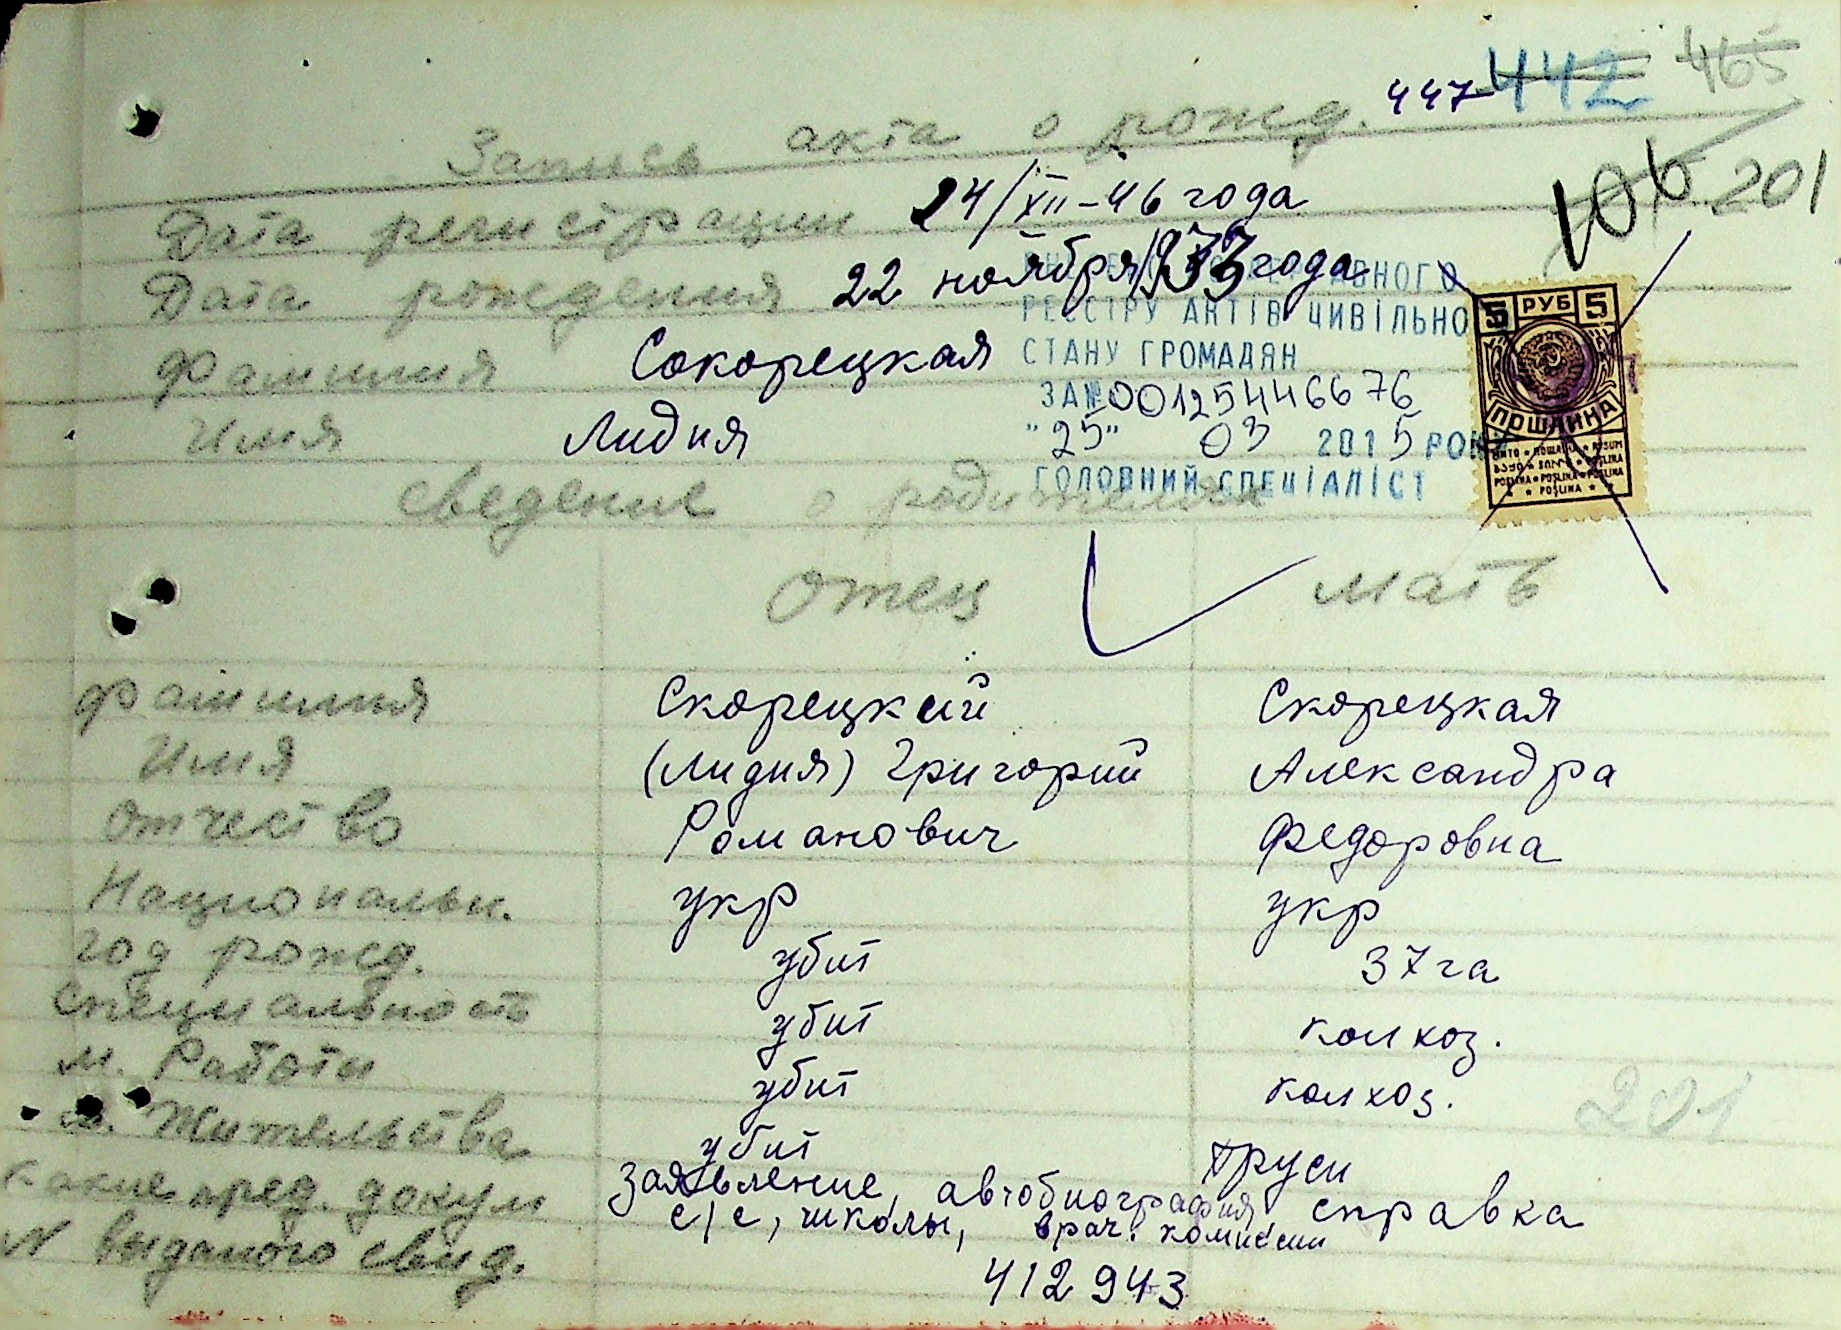 447 442 465
Запись акта о рожд.
106 201
Дата регистрации 24/XII-46 года
Дата рождения 22 ноября 1933 года
РЕЄСТРУ АКТІВ ЦИВІЛЬНО
Фамилия Сокорецкая
СТАНУ ГРОМАДЯН
ЗА № 00125446676
Имя Лидия
"25" 03 2015 РОКУ
ГОЛОВНИЙ СПЕЦІАЛІСТ
5 РУБ 5
ПОШЛИНА
сведения о родителях
отец мать
фамилия Скорецкий Скорецкая
Имя (Лидия) Григорий Александра
отчество Романович Федоровна
Национальн. укр укр
год рожд. убит 37 га
специальность убит колхоз.
м. Работы убит колхоз.
201
м. Жительства убит Труси
какие пред. докум Заявление, автобиография справка
с/с, школы, врач. комиссии
N выданого свид. 412943